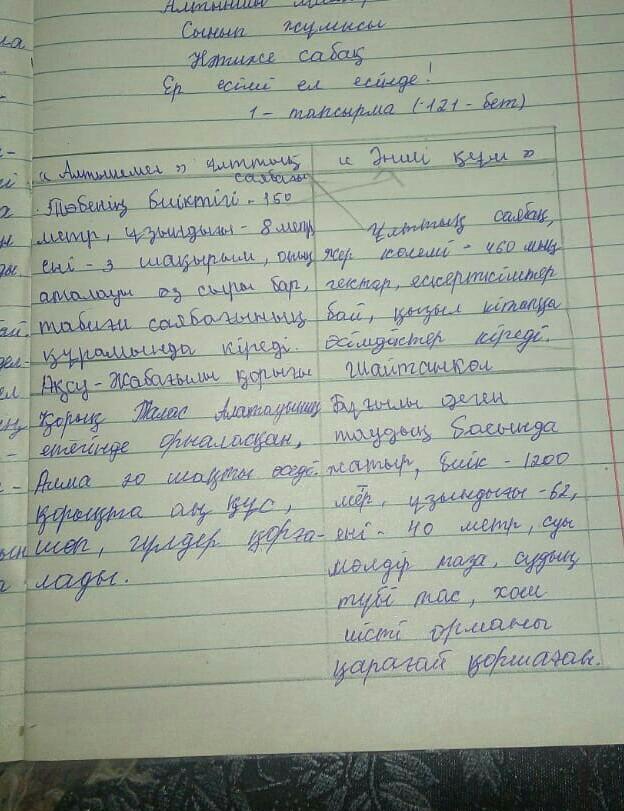 Сынып жұмысы
Нәтиже сабақ
Ер есімі ел есінде!
1 - тапсырма (121 - бет)
« Алтынемел » ұлттық
саябағы
Төбенің биіктігі - 150
метр, ұзындығы - 8 метр
ені - 3 шақырым, оның
аталауы өз сыры бар,
табиғи саябағының
құрамында кіреді.
« Әнші құм »
Ұлттық саябақ,
жер көлемі - 460 мың
гектар, ескерткіштер
бай, қызыл кітапқа
өсімдіктер кіреді.
Ақсу - Жабағылы қорығы
Қорық Талас Алатауының
етегінде орналасқан,
Алма 20 шақты
қорықта аң құс,
шөп, гүлдер қорға-
лады.
Шайтанкөл
Бұғылы деген
таудың басында
жатыр, биік - 1200
мёр, ұзындығы - 62,
ені - 40 метр, суы
мөлдір таза, судың
түбі тас, хош
иісті орманы
қарағай қоршаған.